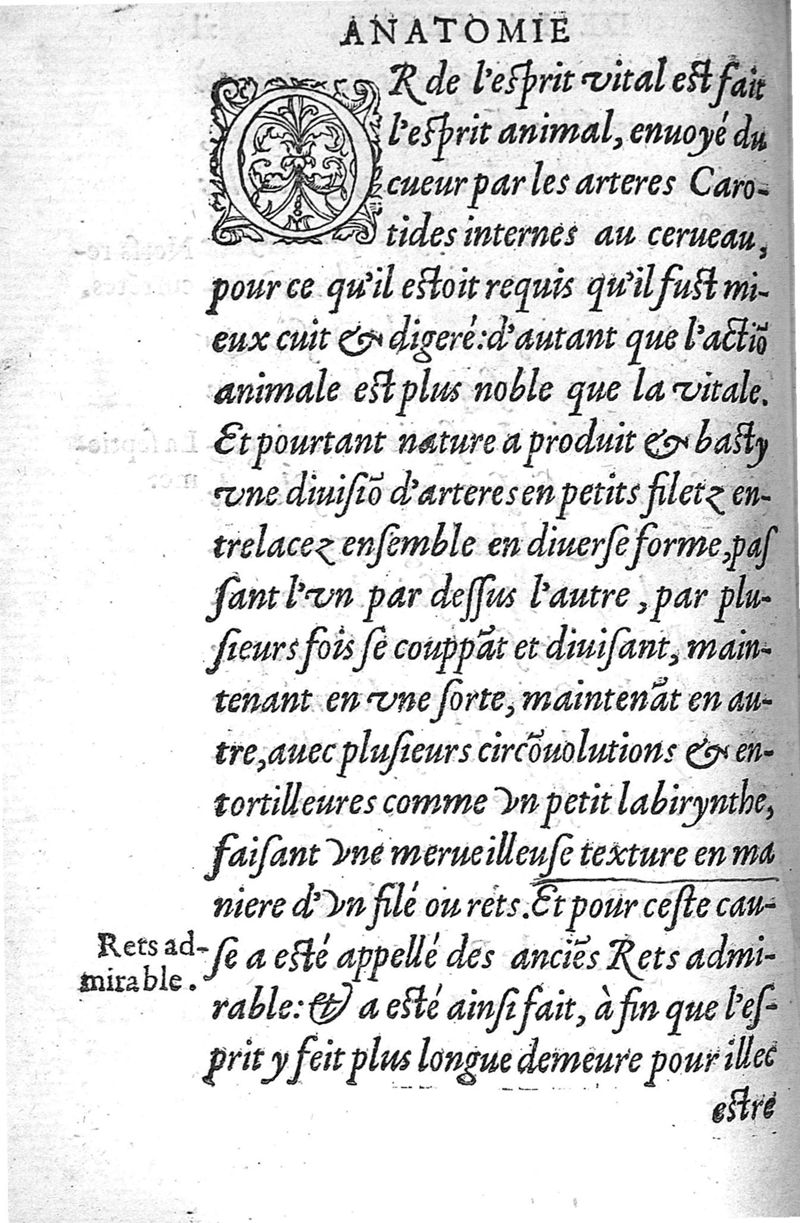 ANATOMIE
OR de l'esprit vital est fait
l'esprit animal, enuoyé du
cueur par les arteres Caro-
tides internes au cerueau,
pour ce qu'il estoit requis qu'il fust mi-
eux cuit & digeré: d'autant que l'actiō
animale est plus noble que la vitale.
Et pourtant nature a produit & basty
vne diuisiō d'arteres en petits filetz en-
trelacez ensemble en diuerse forme, pas
sant l'vn par dessus l'autre, par plu-
sieurs fois se couppāt et diuisant, main-
tenant en vne sorte, maintenāt en au-
tre, auec plusieurs circōuolutions & en-
tortilleures comme vn petit labirynthe,
faisant vne merueilleuse texture en ma
niere d'vn filé ou rets. Et pour ceste cau-
Rets ad-
mirable.
se a esté appellé des anciēs Rets admi-
rable: & a esté ainsi fait, à fin que l'es-
prit y feit plus longue demeure pour illec
estre